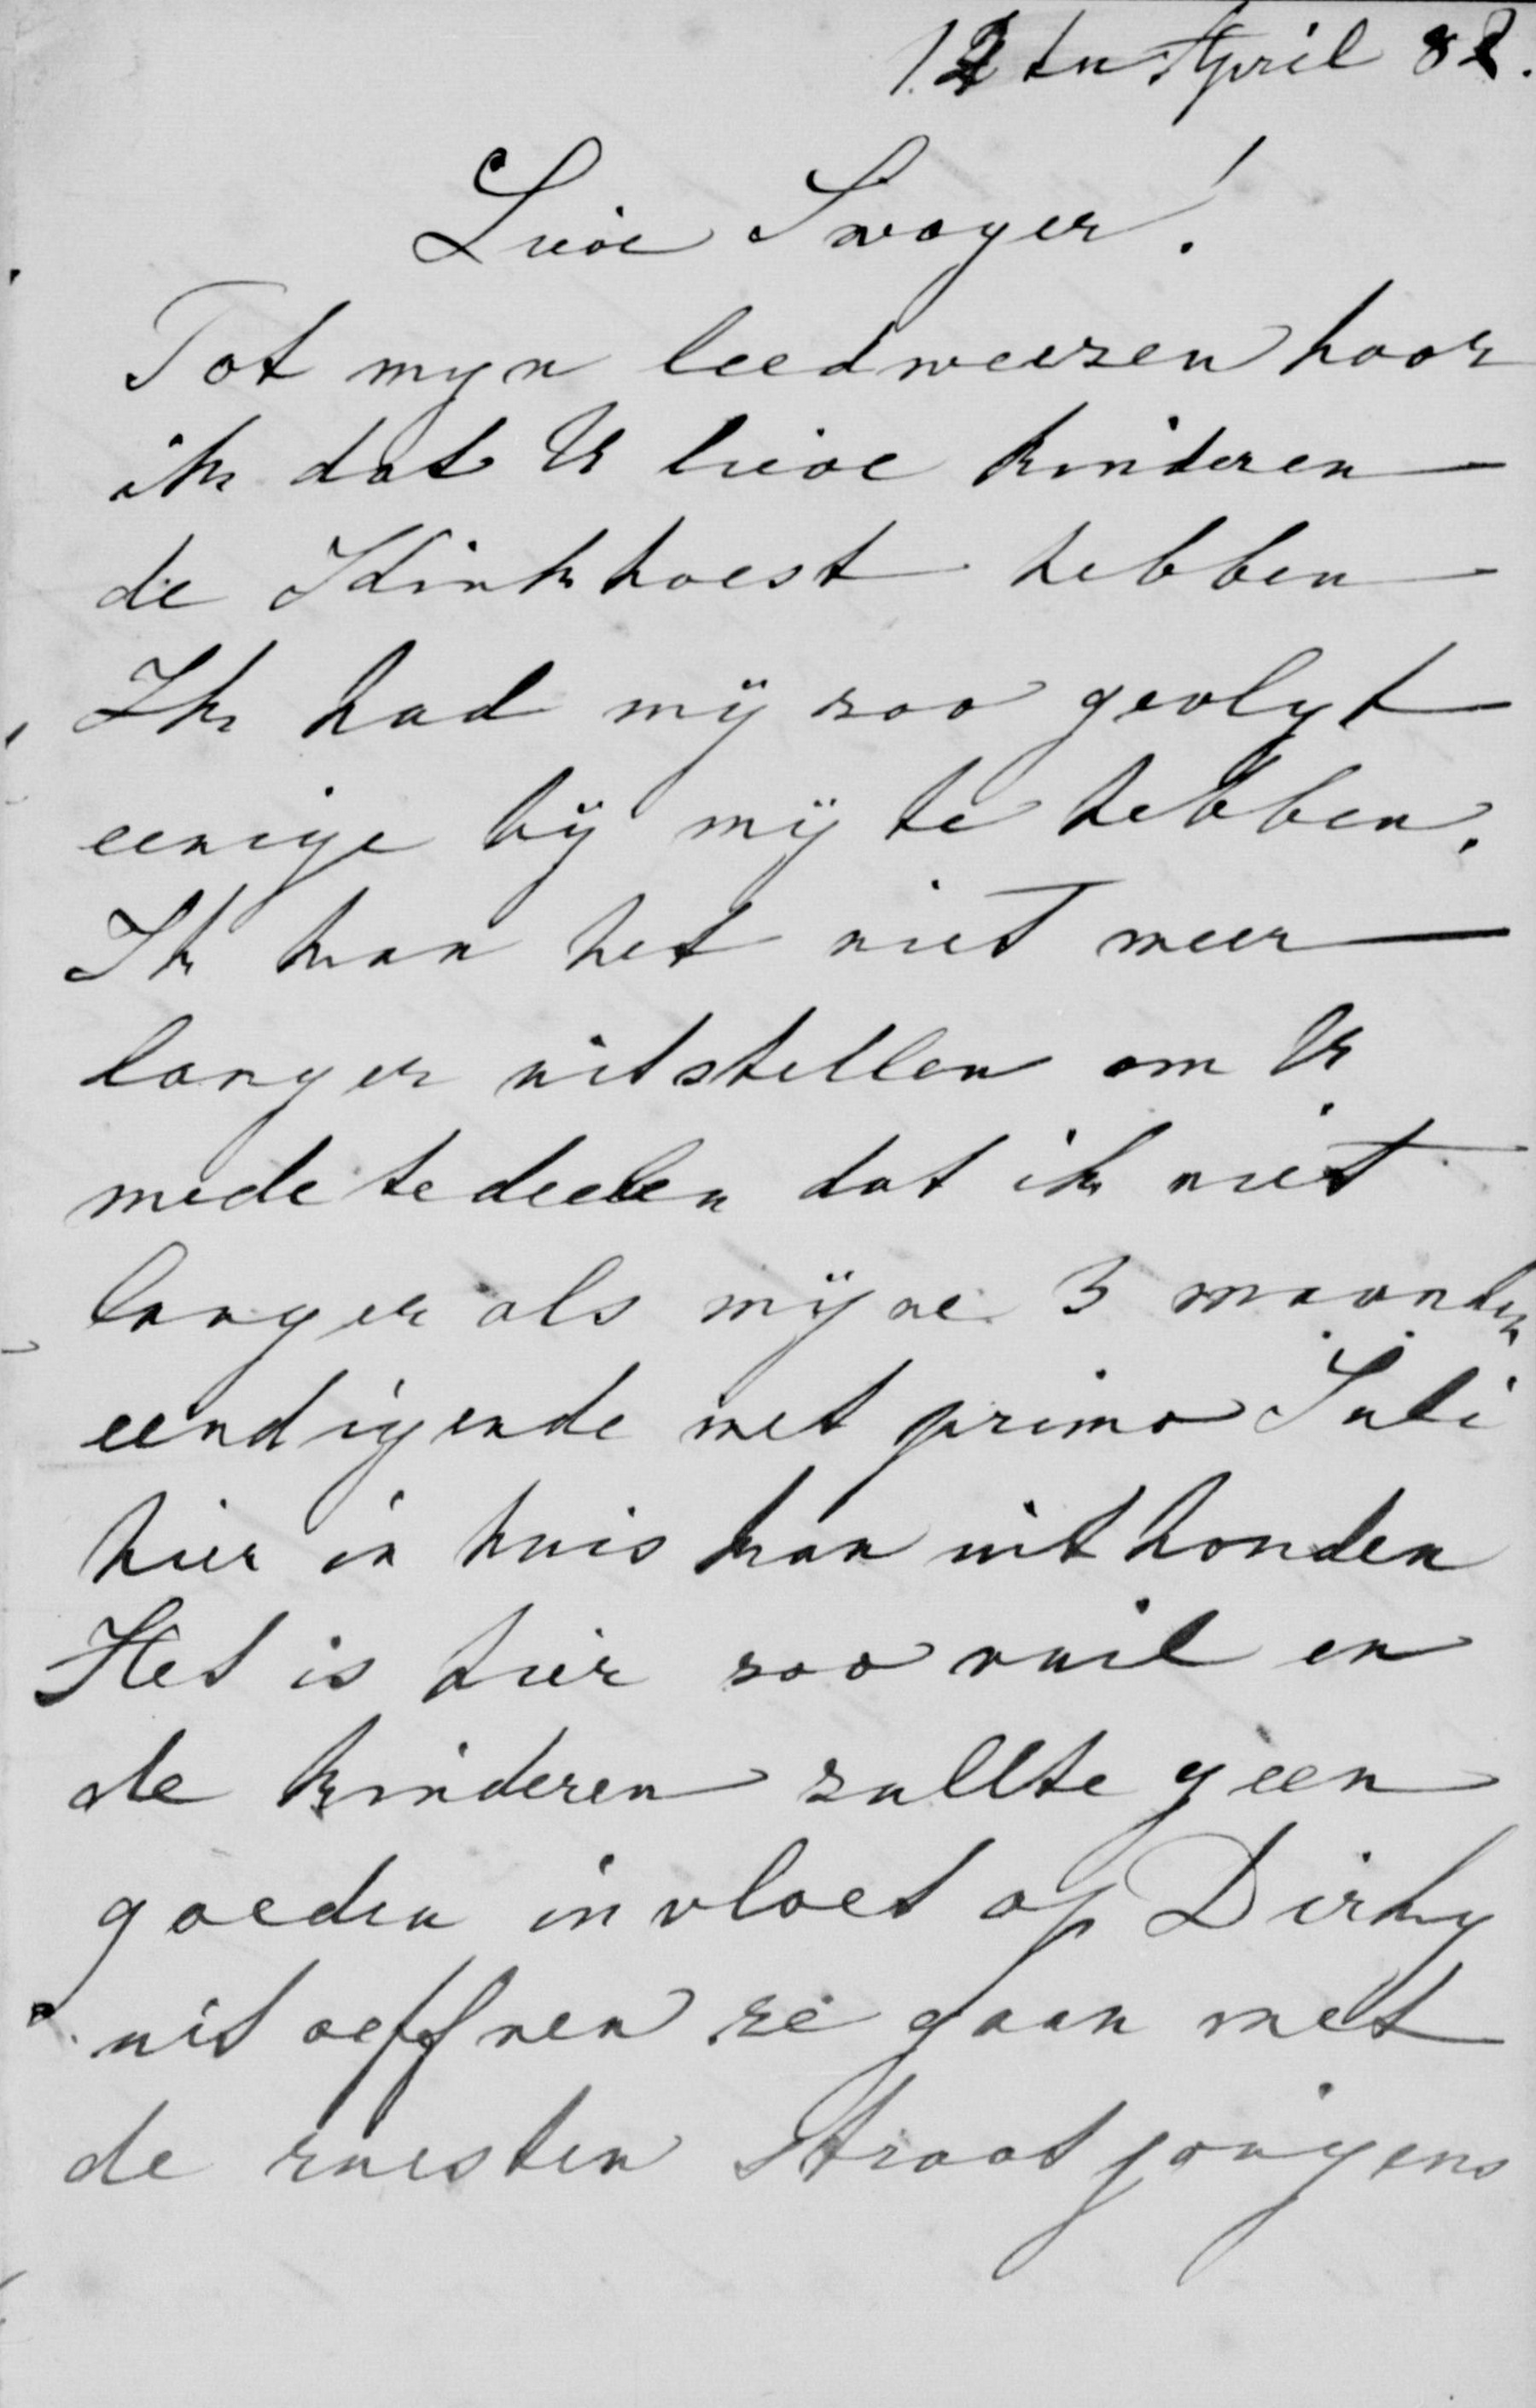 12 den April 82.
Lieve Swager!
Tot myn leedweezen hoor
ik dat U lieve kinderen
de Kinkhoest hebben
Ik had mij zoo gevlyt
eenige bij mij te hebben.
Ik kan het niet meer
langer uitstellen om U
mede te deelen dat ik niet
langer als mijne 3 maanden
eendigende met primo Juli
hier in huis kan uithouden
Het is hier zoo vuil en
de kinderen zullte geen
goeden invloet op Dirky
uit oeffnen ze gaan met
de straatjongens